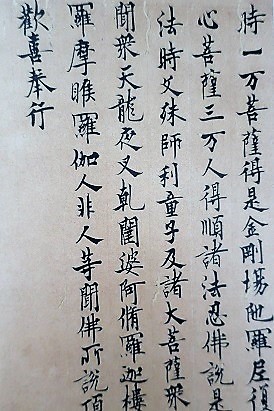 時一万菩薩得是金剛場陁羅尼復
心菩薩三万人得順諸法忍佛說是
法時文殊師利童子及諸大菩薩衆
聞衆天龍夜叉乹闥婆阿脩羅迦樓
羅摩睺羅伽人非人等聞佛所說頂
歡喜奉行